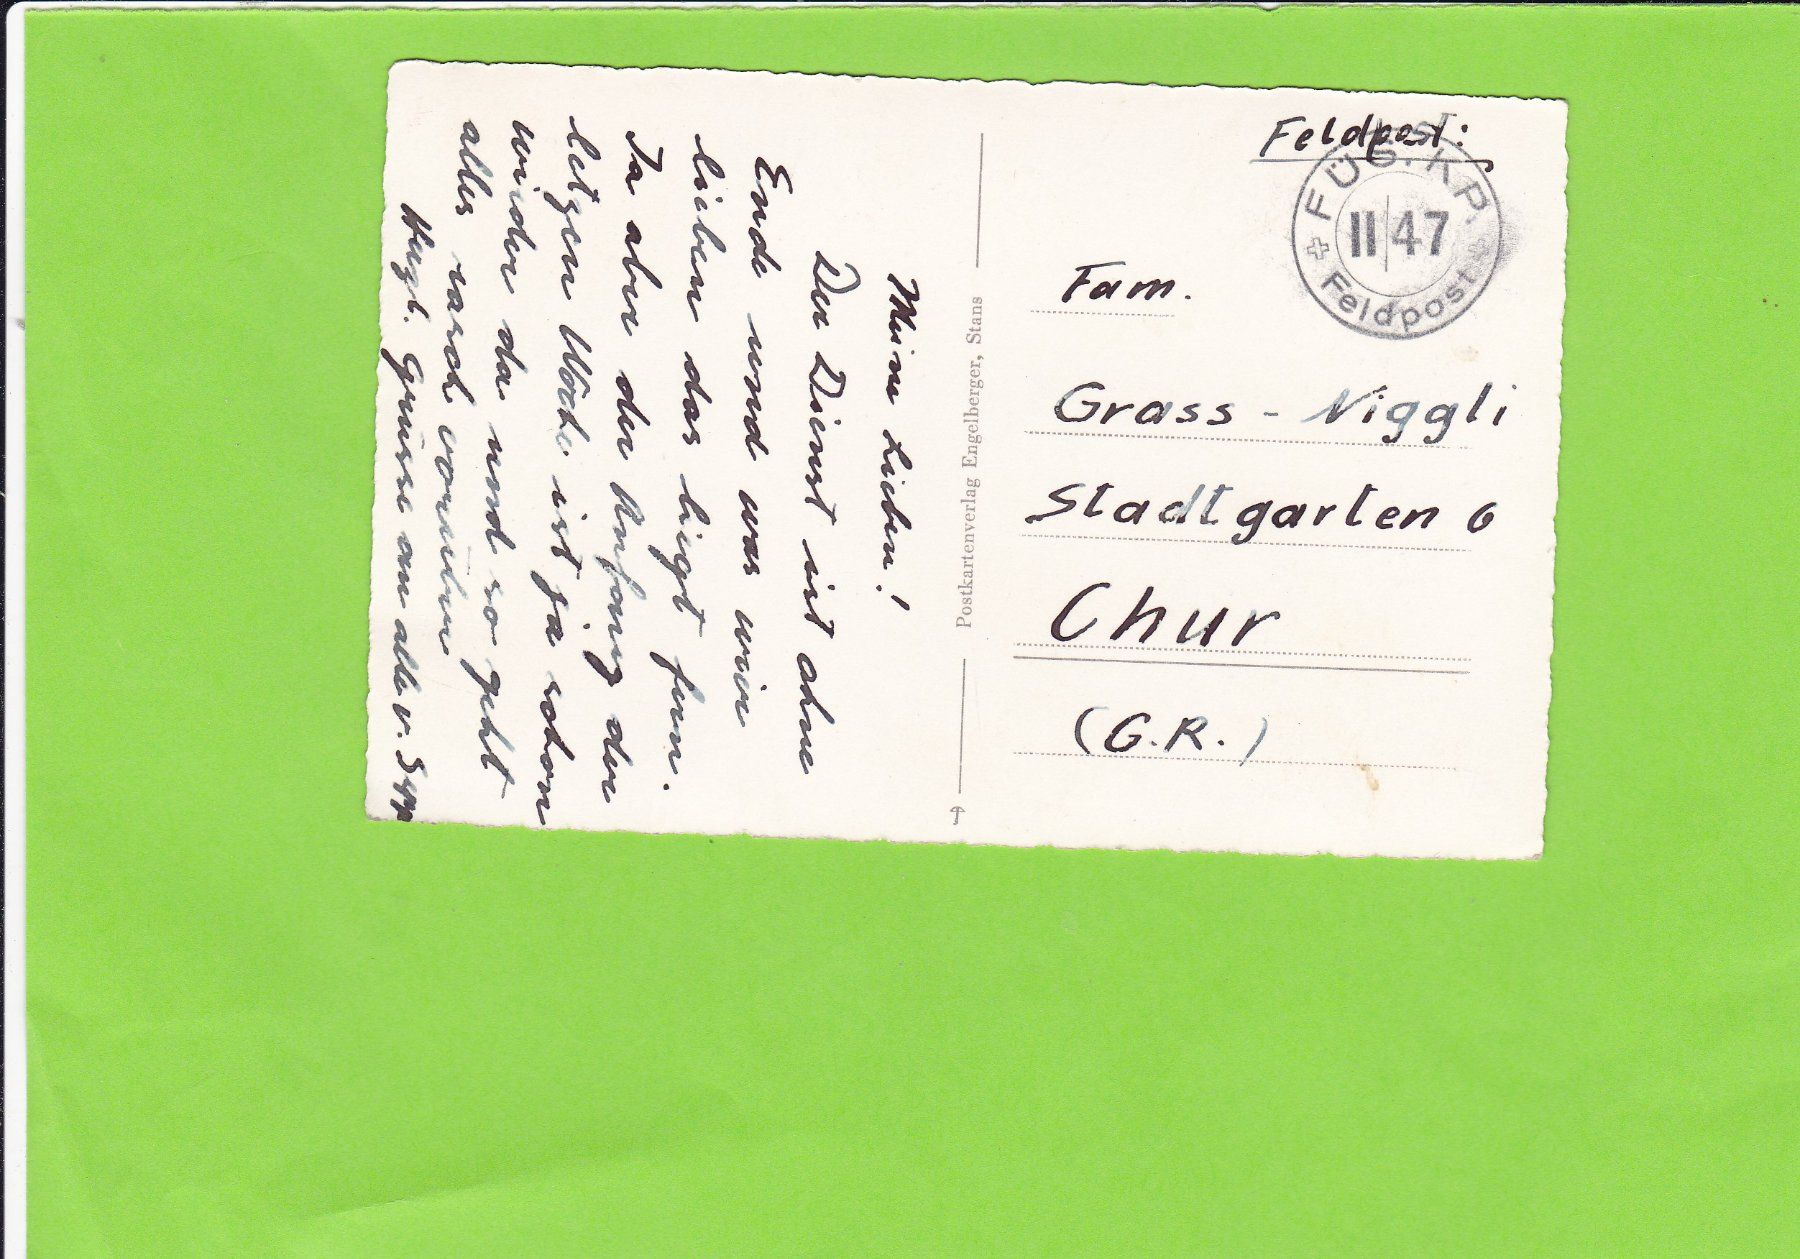 Meine Lieben!
Der Dienst ist ohne
Ende und was wir
lieben das liegt fern.
Ja aber der Anfang der
letzen Woche ist ja schon
wieder da und so geht
alles rasch vorüber
Herzl. Grüsse an alle v.
Postkartenverlag Engelberger, Stans
Feldpost:
FÜS. KP.
II 47
Feldpost
Fam.
Grass - Niggli
Stadtgarten 6
Chur
(G.R.)